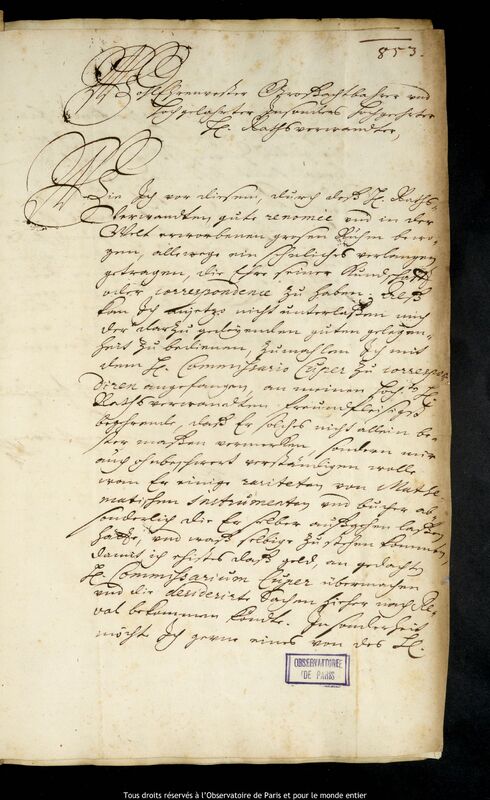 853.
WohlEhrenvester Großachtbahrer und
Hochgelahrter Insonders Hochgeehrter
H. Rathsverwandter,
Wie Ich vor diesem, durch deß H. Raths-
verwandten, gute renomée und in der
Welt erworbenen großen Ruhm bewo-
gen, allewege ein sehnliches verlangen
getragen, die Ehre seiner Kundschafft
oder correspondence zu haben: Alß
kan Ich anjetzo nicht unterlaßen mich
der darzu gelegenden guten gelegen-
heit zu bedienen, zumahlen Ich mit
dem H. Commissario Cuper zu correspon-
diren angefangen, an meinen Hoch: H.
Rathsverwandten freundfleißigst
begehrende, daß Er solches nicht allein be-
ster maßen vermerken, sondern mir
auch ohnbeschwert verständigen wolle
wan Er einige rariteten von Mathe-
matischen Instrumenten und bücher ab-
sonderlich die Er selber außgehen laßen
hätte, und waß selbige zu stehen kommen,
damit ich ehistes daß geld, an gedacht
H. Commissarium Cuper übermachen
und die desiderirte Sachen hieher nach Re-
val bekommen könte. Insonderheit
möcht Ich gerne eines von des H.
OBSERVATOIRE
DE PARIS
Tous droits réservés à l'Observatoire de Paris et pour le monde entier